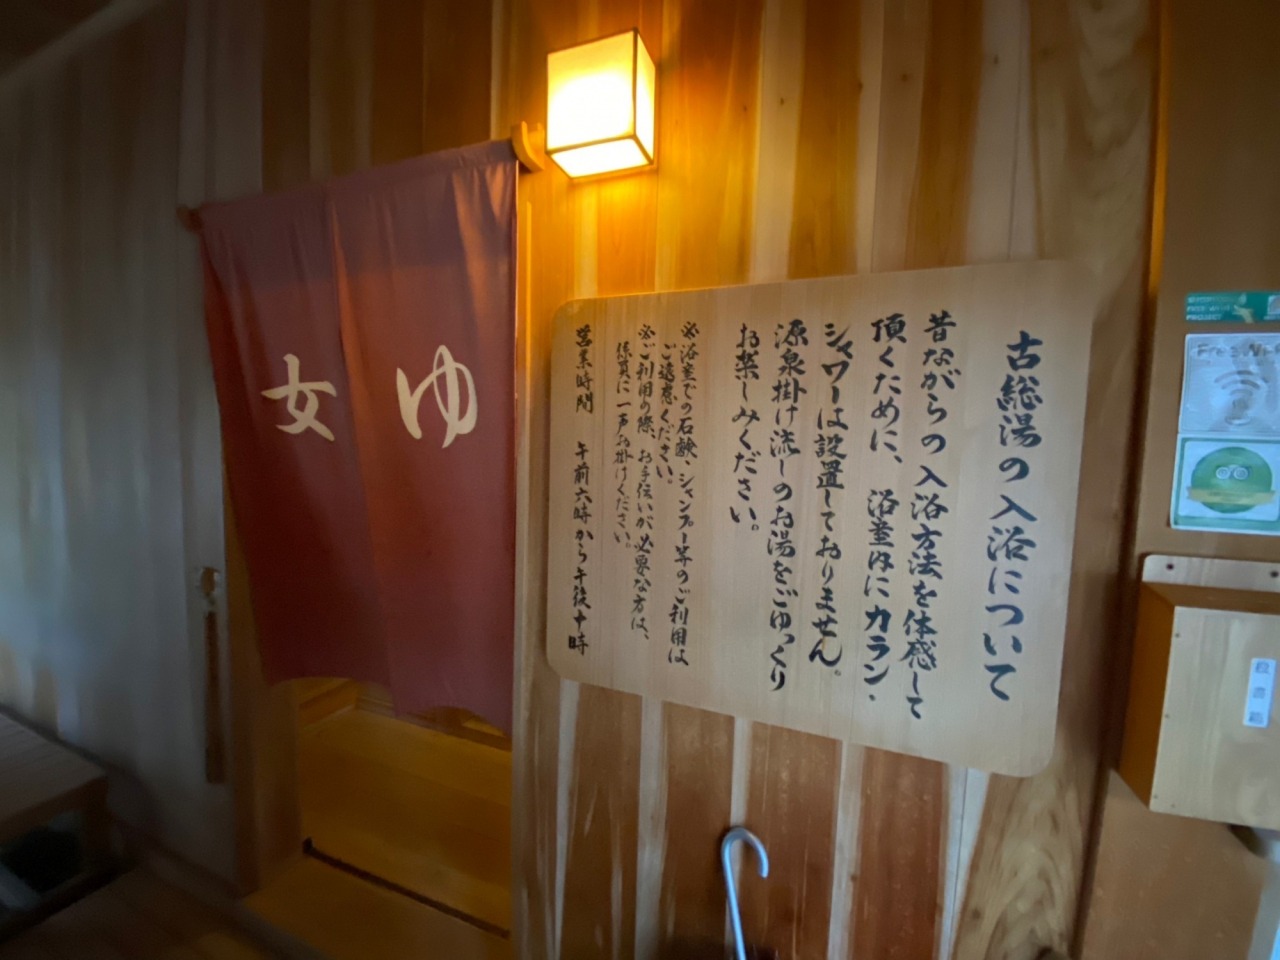 ゆ
女
古総湯の入浴について
昔ながらの入浴方法を体感して
頂くために、浴室内にカラン・
シャワーは設置しておりません。
源泉掛け流しのお湯をごゆっくり
お楽しみください。
※浴室での石鹸、シャンプー等のご利用は
ご遠慮ください。
※ご利用の際、お手伝いが必要な方は、
係員に一声お掛けください。
営業時間 午前六時から午後十時
Free Wi-Fi
PROJECT